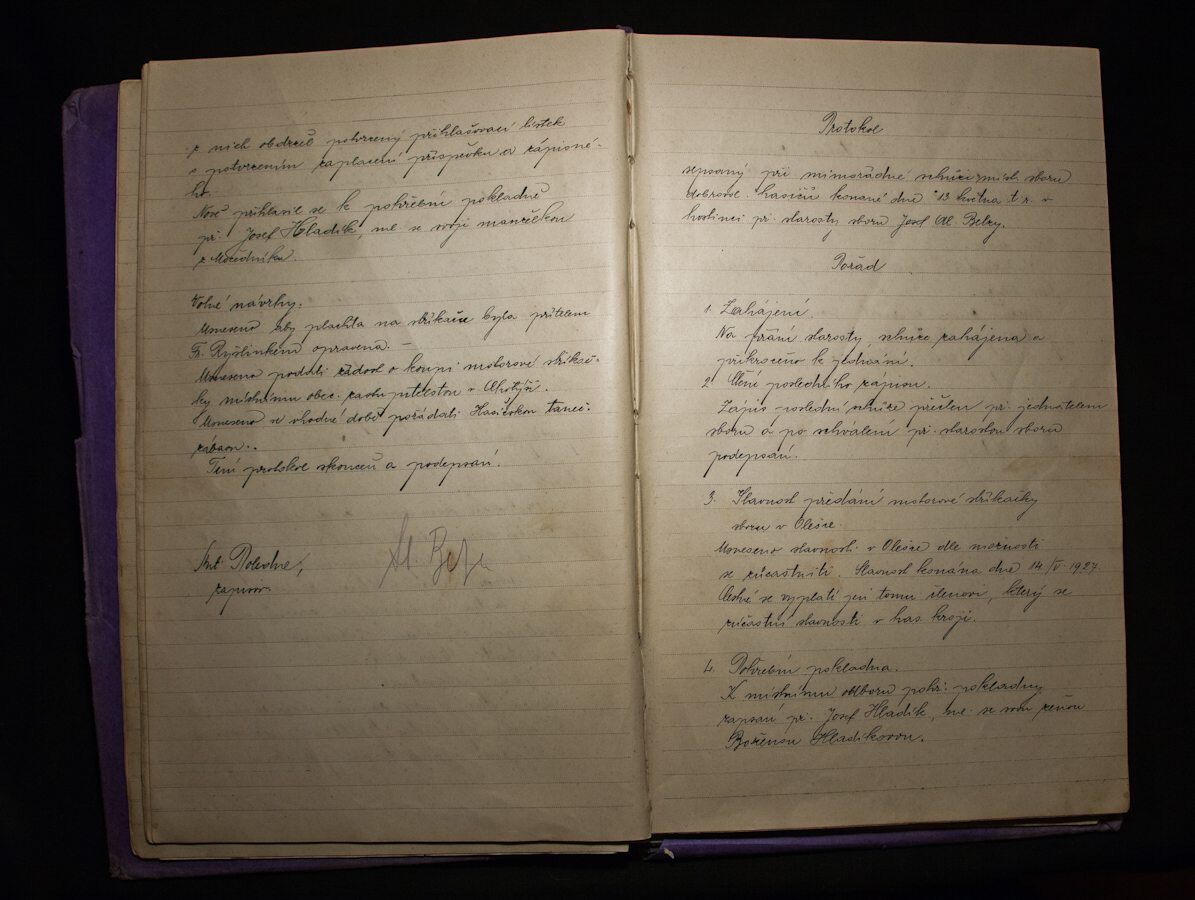 z nich obdržel potvrzený přihlašovací lístek
s potvrzením zaplacení příspěvku a zápisné-
ho.
Nově přihlásil se k pohřební pokladně
př. Josef Hladík, se svojí manželkou
z
Volné návrhy.
Usneseno aby plachta na stříkačce byla přítelem
Fr. Ryšlinkem opravena. –
Usneseno podati žádost o koupi motorové stříkač-
ky místnímu obec. zastupitelstvu v
Usneseno ve vhodné době pořádati Hasičskou taneč.
zábavu.
Tím protokol skončen a podepsán.
Ant. Poledne,
zapisov.
Al. Belz
Protokol
sepsaný při mimořádné schůzi míst. sboru
dobrovol. hasičů konané dne 13 května t. r. v
hostinci př. starosty sboru Josef Al. Belzy.
Pořad
1. Zahájení.
Na přání starosty schůze zahájena a
přikročeno k jednání.
2. Čtení posledního zápisu.
Zápis poslední schůze přečten př. jednatelem
sboru a po schválení př. starostou sboru
podepsán.
3. Slavnost předání motorové stříkačky
sboru v Olešce.
Usneseno slavnosti v Olešce dle možnosti
se zúčastniti. Slavnost konána dne 14/V 1927
se vyplatí jen tomu členovi, který se
zúčastní slavnosti v has. kroji.
4. Pohřební pokladna.
K místnímu odboru pohř. pokladny
zapsán př. Josef Hladík, se svou ženou
Boženou Hladíkovou.